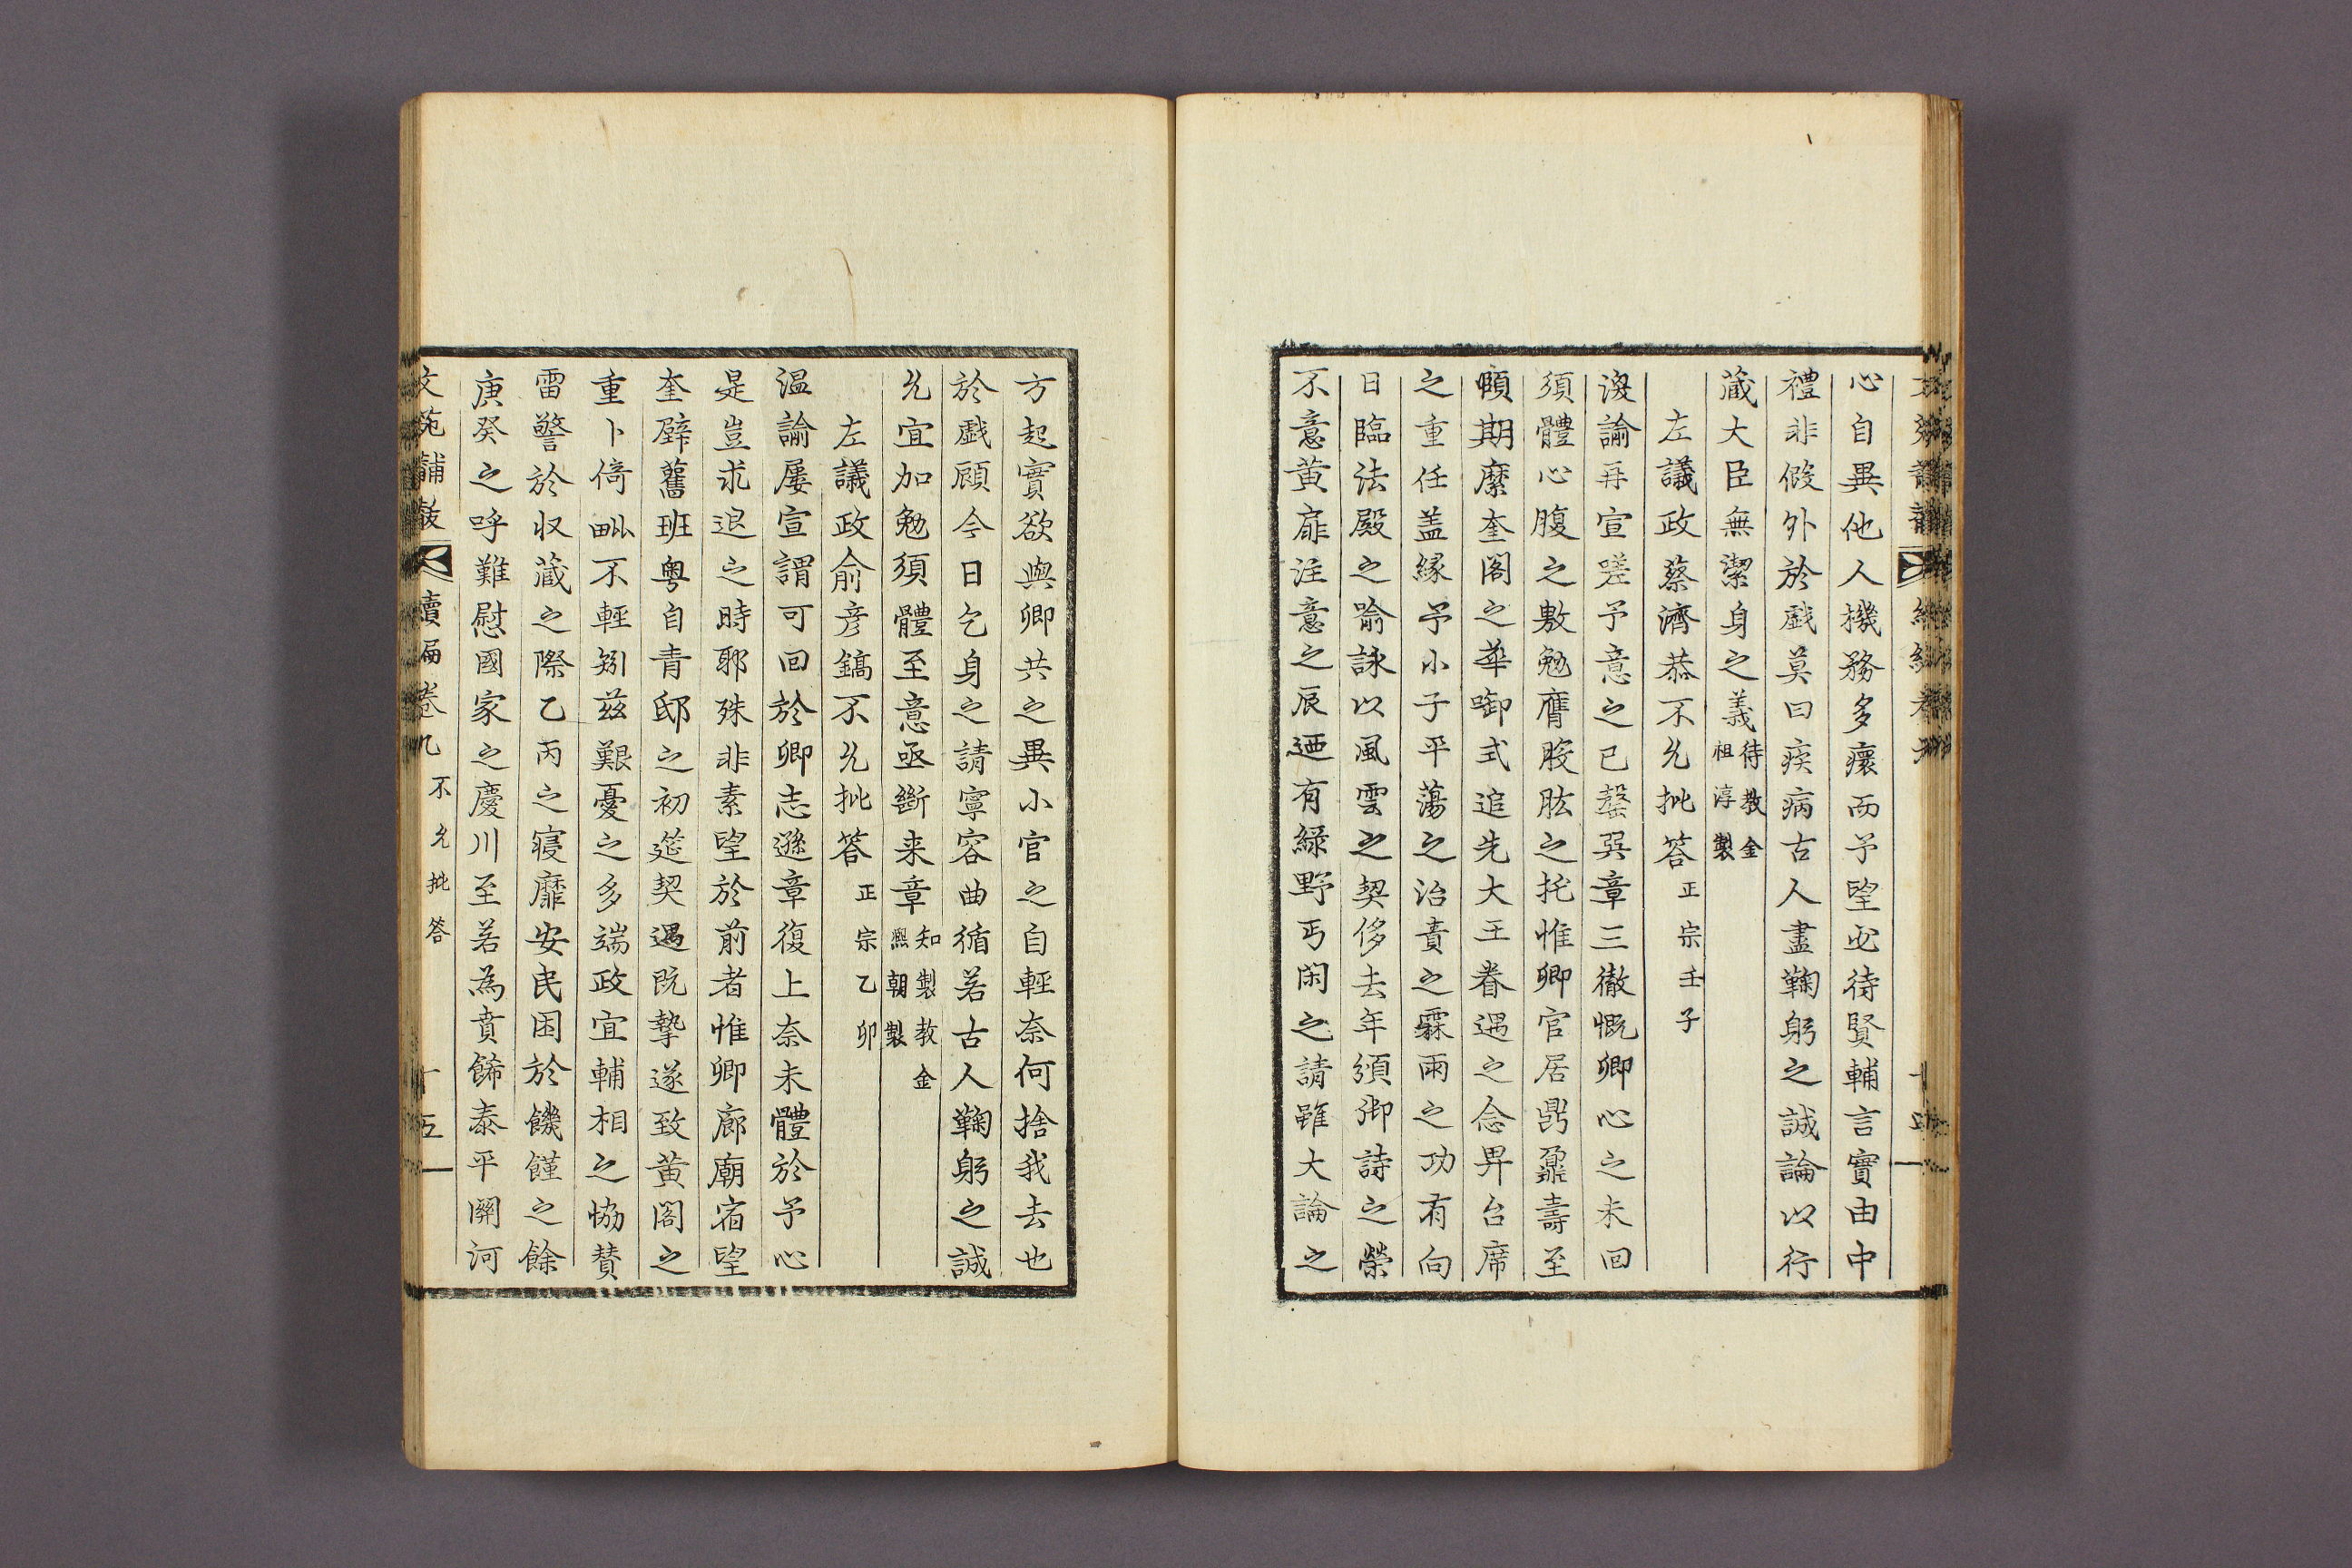 心自異他人機務多瓌而予望必待賢輔言實由中
禮非假外於戲莫曰疾病古人盡鞠躬之誠論以行
藏大臣無潔身之義待教金祖淳製
左議政蔡濟恭不允批答正宗壬子
渙諭再宣嗟予意之已罄巽章三徹慨卿心之未回
須體心腹之敷勉膺股肱之托惟卿官居鼎鼐壽至
頫期縻奎閣之華啣式追先大王眷遇之念畀台席
之重任盖緣予小子平蕩之治責之霖雨之功有向
日臨法殿之喻詠以風雲之契侈去年頒御詩之榮
不意黃扉注意之辰迺有綠野丐閑之請雖大論之
方起實欲與卿共之異小官之自輕奈何捨我去也
於戲顧今日乞身之請寧容曲循若古人鞠躬之誠
允宜加勉須體至意亟斷来章知製教金熙朝製
左議政俞彥鎬不允批答正宗乙卯
溫諭屢宣謂可回於卿志遜章復上奈未體於予心
是豈求退之時耶殊非素望於前者惟卿廊廟宿望
奎壁舊班粤自青邸之初筵契遇既摯遂致黃閣之
重卜倚毗不輕矧玆艱憂之多端政宜輔相之協賛
雷警於收藏之際乙丙之寢靡安民困於饑饉之餘
庚癸之呼難慰國家之慶川至若為賁餙泰平關河
文苑黼黻 續編卷九 不允批答 十五